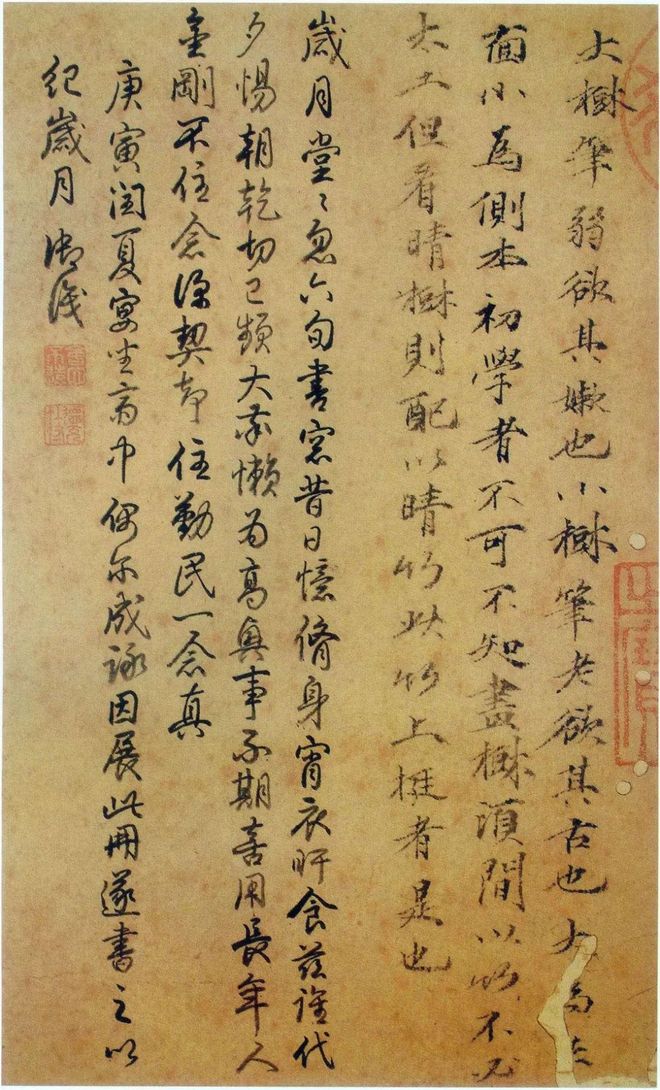 大樹筆弱欲其嫩也小樹筆老欲其古也大為主
面小為側本初學者不可不知畫樹須間以竹不必
太工但看晴樹則配以晴竹此竹上挺者是也
歲月堂〻忽六旬書窓昔日憶脩身宵衣旰食茲誰代
夕惕朝乾切己頻大懶為高興事不期喜用長年人
金剛不住念深契却住勤民一念真
庚寅閏夏宴坐齋中偶尔成詠因展此冊遂書之以
紀歲月御識